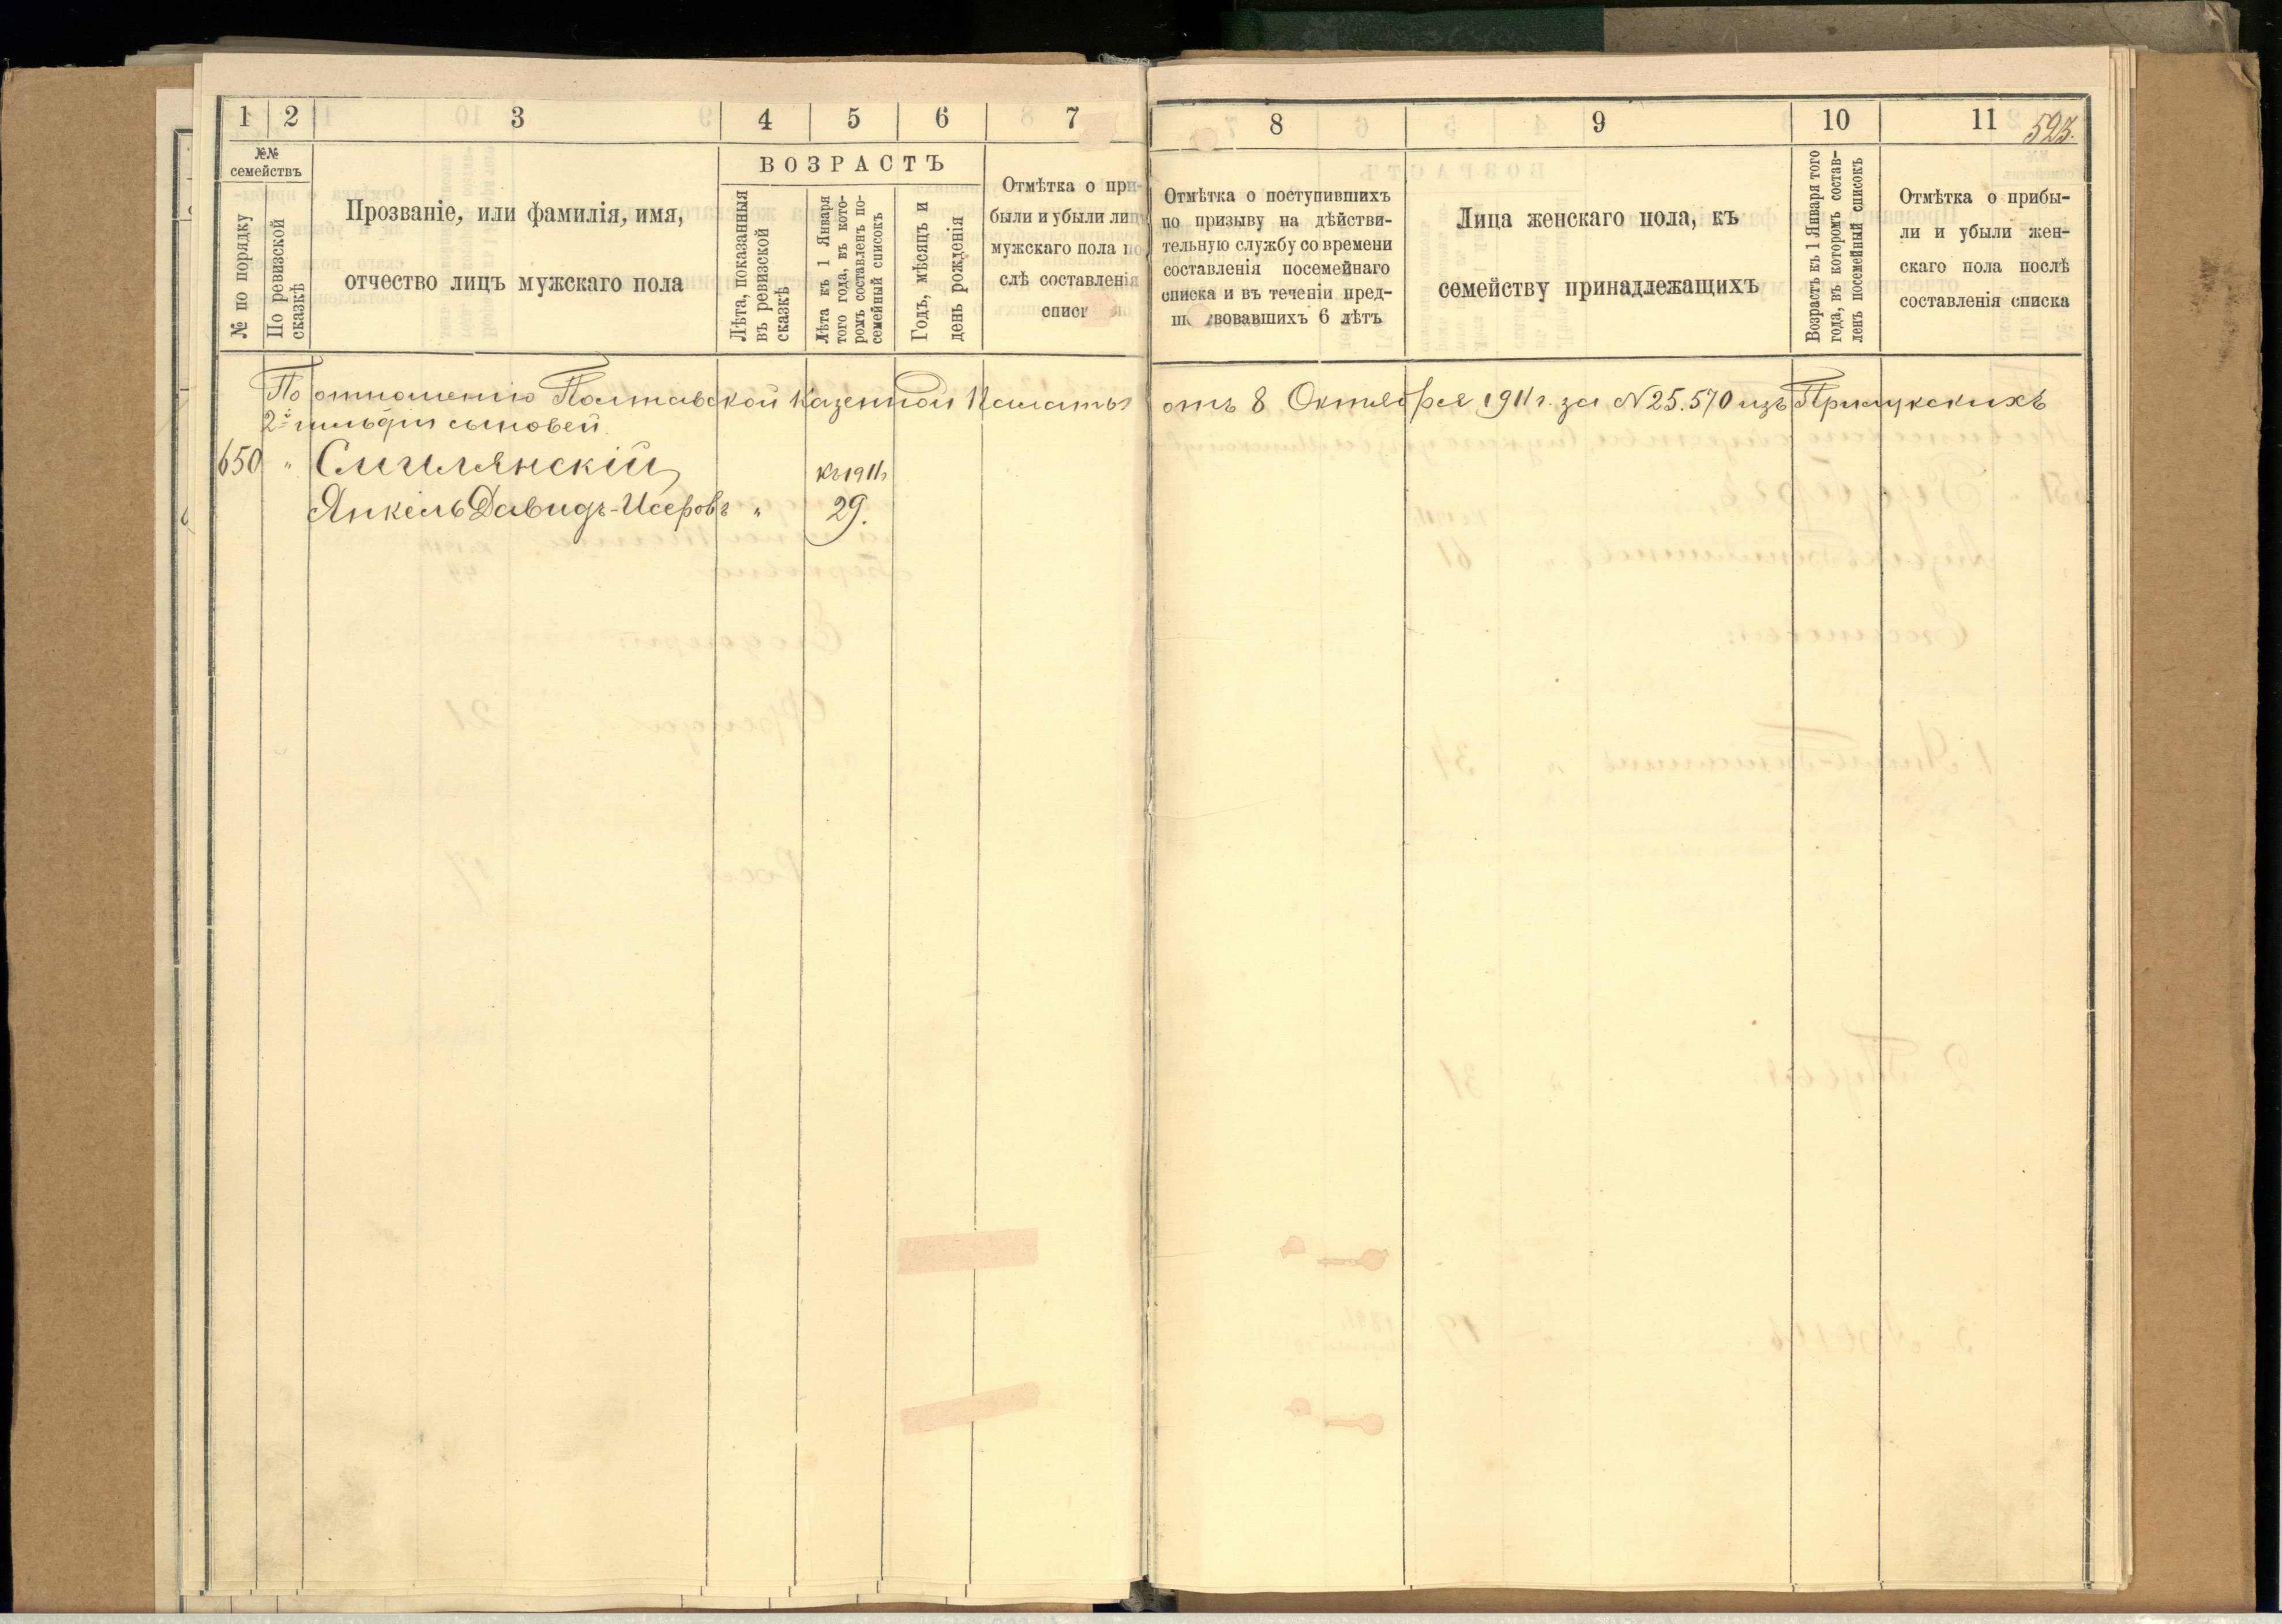 1 2 3 4 5 6 7
№№ семействъ
ВОЗРАСТЪ
№ по порядку
По ревизской сказкѣ
Прозваніе, или фамилія, имя,
отчество лицъ мужскаго пола
Лѣта, показанныя
въ ревизской
сказкѣ
Лѣта къ 1 Января
того года, въ кото-
ромъ составленъ по-
семейный списокъ
Годъ, мѣсяцъ и
день рожденія
Отмѣтка о при-
были и убыли лицъ
мужскаго пола по
слѣ составленія
списк
8 9 10 11
523.
Отмѣтка о поступившихъ
по призыву на дѣйстви-
тельную службу со времени
составленія посемейнаго
списка и въ теченіи пред-
шествовавшихъ 6 лѣтъ
Лица женскаго пола, къ
семейству принадлежащихъ
Возрастъ къ 1 Января того
года, въ которомъ состав-
ленъ посемейный списокъ
Отмѣтка о прибы-
ли и убыли жен-
скаго пола послѣ
составленія списка
По отношенію Полтавской Казенной Палаты отъ 8 Октября 1911 г. за № 25.570 изъ Прилукскихъ
2й гильдіи сыновей
650 " Смилянскій къ 1911 г.
Янкель Давидъ-Исеровъ " 29.